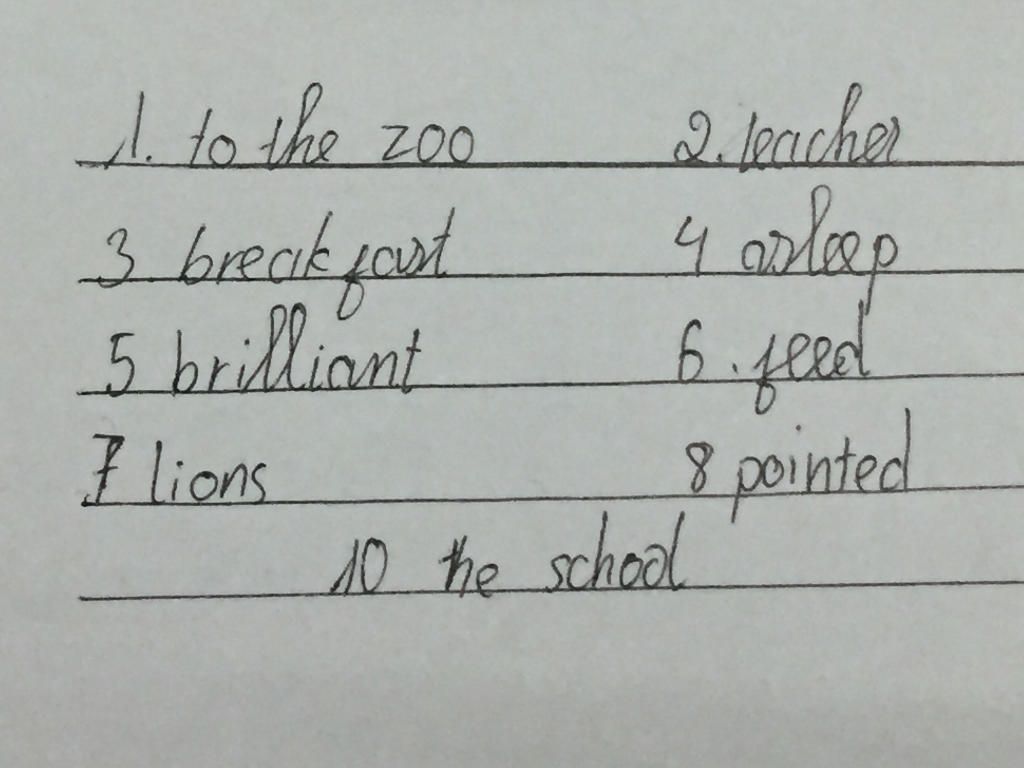 1. to the zoo 2. teacher
3 breakfast 4 asleep
5 brilliant 6. feed
7 lions 8 pointed
10 the school